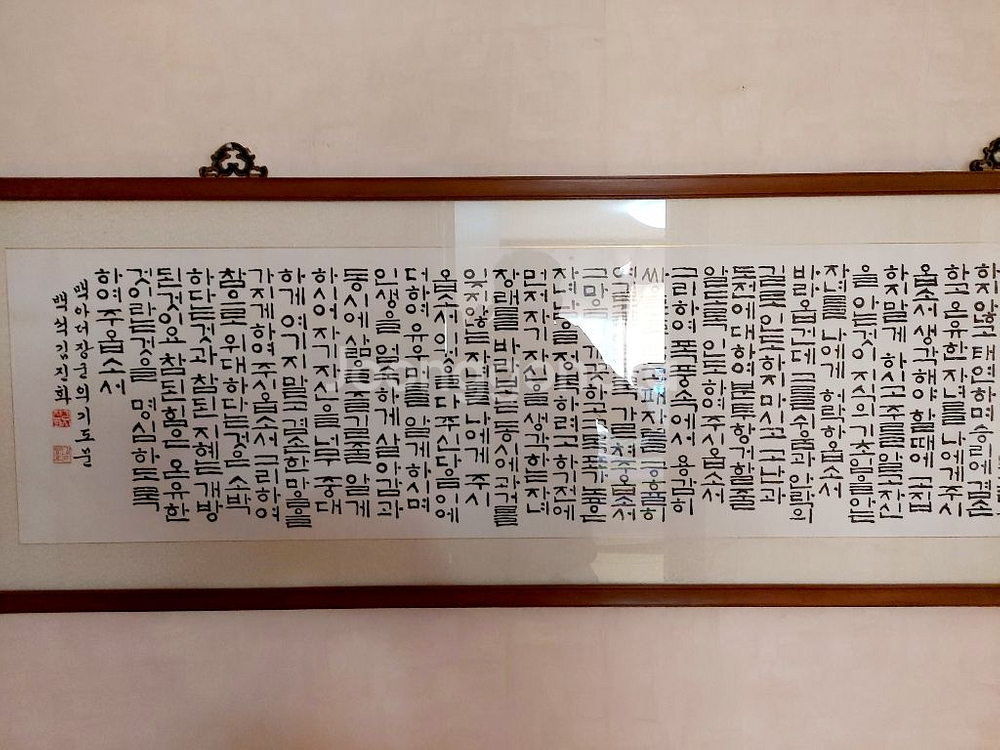 하지않고 태연하며 승리에 겸손
하고 온유한 자녀를 나에게 주시
옵소서 생각해야 할때에 고집
하지말게 하시고 주를 알고 자신
을 아는것이 지식의 기초임을 아는
자녀를 나에게 허락하옵소서
바라옵건데 그를 쉬움과 안락의
길로 인도하지 마시고 고난과
도전에 대하여 분투 항거할줄
알도록 인도하여 주시옵소서
그리하여 폭풍속에서 용감히
패자를 긍휼히
여길줄 가르쳐 주옵소서
그 마음이 깨끗하고 그 목표가 높은
자녀를 남을 정복하려고 하기전에
먼저 자기자신을 생각하는 자녀
장래를 바라봄과 동시에 과거를
잊지않는 자녀를 나에게 주시
옵소서 이것을 다 주신 다음에
더하여 유우머를 알게하시며
인생을 엄숙하게 살아감과
동시에 삶을 즐길줄 알게
하시어 자기자신을 너무 중대
하게 여기지 말고 겸손한마음을
가지게 하여 주시옵소서 그리하여
참으로 위대하다는것은 소박
하다는것과 참된 지혜는 개방
된것이요 참된 힘은 온유한
것이라는것을 명심하도록
하여주옵소서
맥아더장군의 기도문
백석 김진희